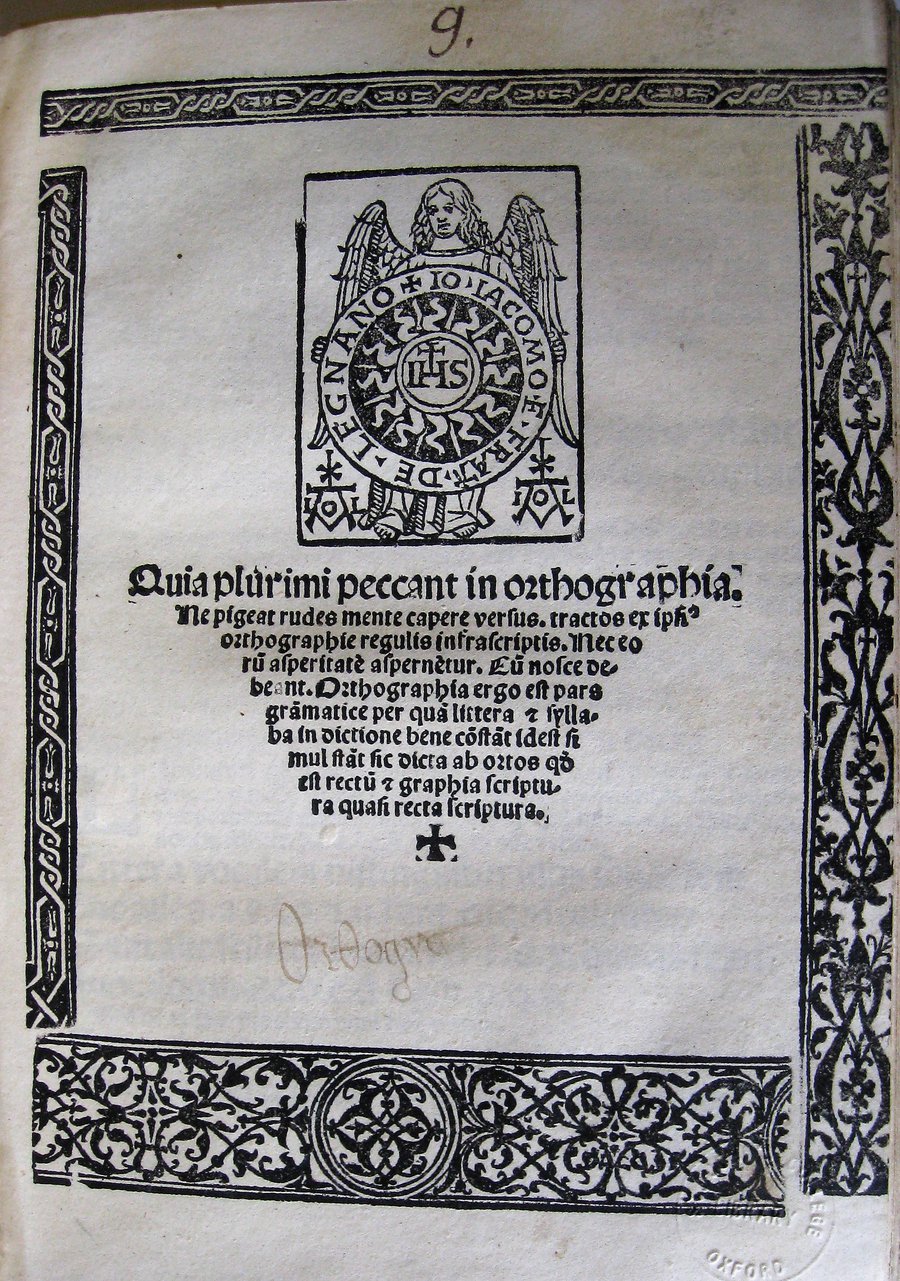 9.
✝ IO · IACOMO · E · FRAT · DE · LEGNANO
IHS
I O L
I O L
Quia plurimi peccant in orthographia.
Ne pigeat rudes mente capere versus. tractos ex ipſiꝰ
orthographie regulis infraſcriptis. Nec eo
rū aſperitatē aſpernētur. Cū noſce de-
beant. Orthographia ergo eſt pars
grāmatice per quā littera ⁊ ſylla-
ba in dictione bene cōſtāt ideſt ſi
mul ſtāt ſic dicta ab ortos qḋ
eſt rectū ⁊ graphia ſcriptu-
ra quaſi recta ſcriptura.
✠
Orthogra
LIBRARY
OXFORD